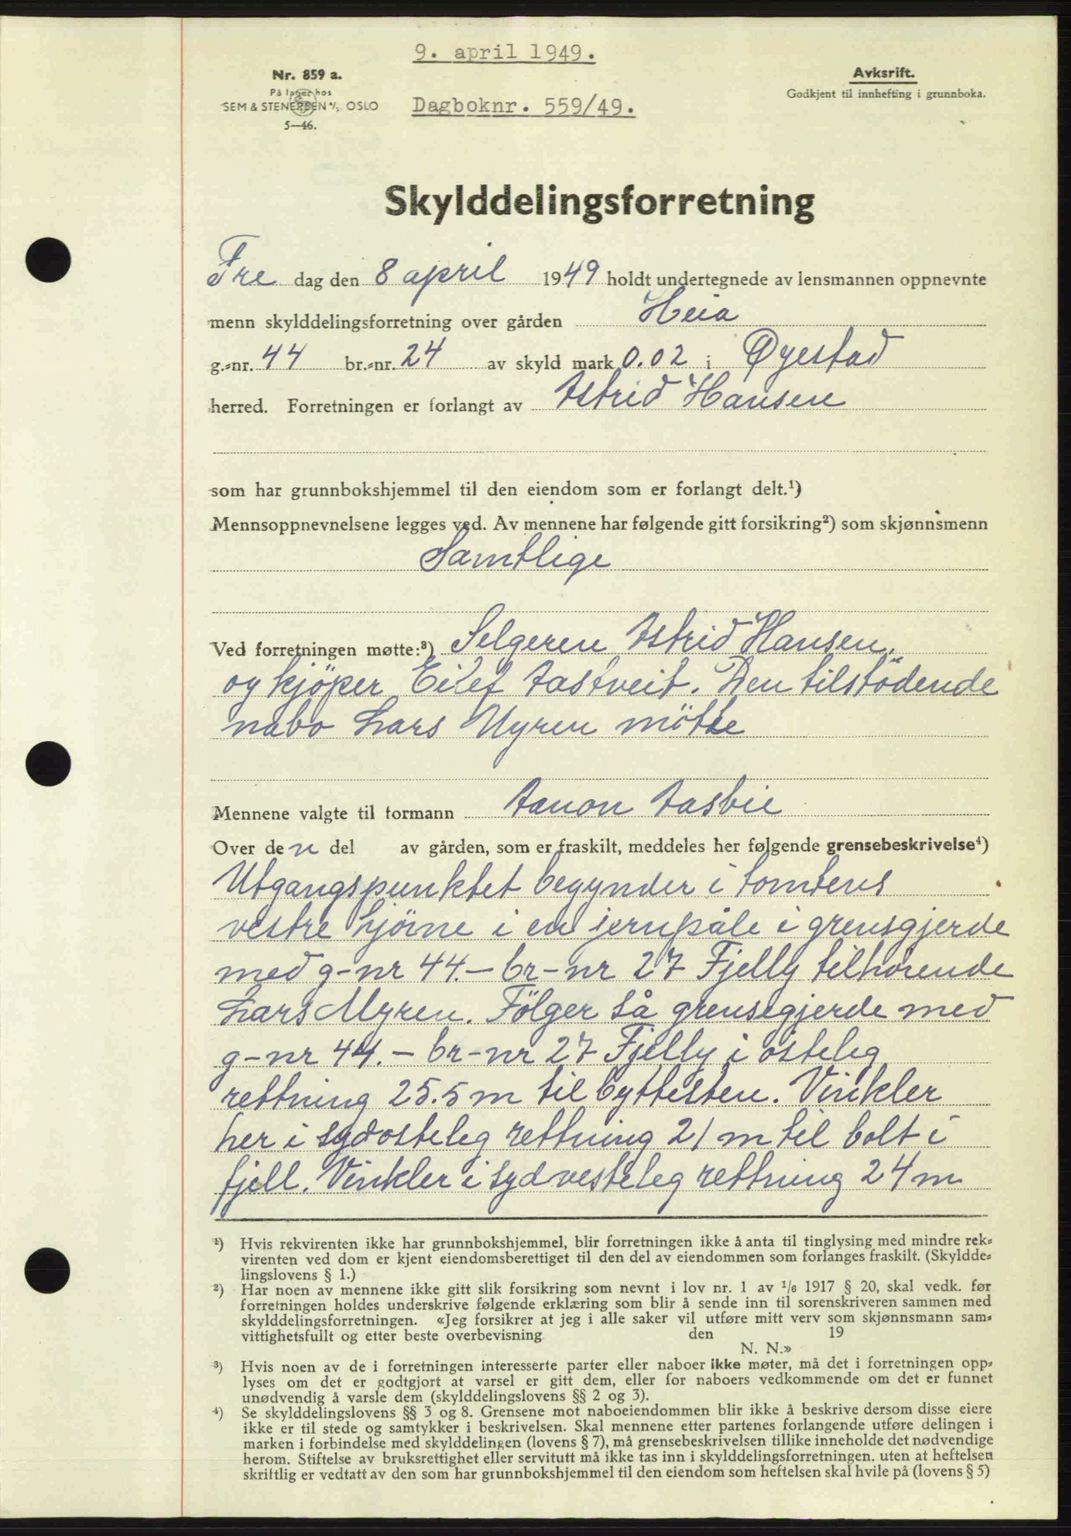 9. april 1949.
Nr. 859 a.
På lager hos
SEM & STENERSEN A/S, OSLO
5—46.
Dagboknr. 559/49.
Avksrift.
Godkjent til innhefting i grunnboka.
Skylddelingsforretning
Fre dag den 8 april 1949 holdt undertegnede av lensmannen oppnevnte
menn skylddelingsforretning over gården Heia
g.-nr. 44 br.-nr. 24 av skyld mark 0.02 i Øyestad
herred. Forretningen er forlangt av Astrid Hansen
som har grunnbokshjemmel til den eiendom som er forlangt delt.¹)
Mennsoppnevnelsene legges ved. Av mennene har følgende gitt forsikring²) som skjønnsmenn
Samtlige
Ved forretningen møtte:³) Selgeren Astrid Hansen,
og kjöper Eilef Aastveit. Den tilstödende
nabo Lars Myren mötte
Mennene valgte til formann Aanon Aasbie
Over den del av gården, som er fraskilt, meddeles her følgende grensebeskrivelse⁴)
Utgangspunktet begynder i tomtens
vestre hjörne i en jernpåle i grensgjerde
med g-nr 44.- br-nr 27 Fjelly tilhörende
Lars Myren. Fölger så grensegjerde med
g-nr 44.- br-nr 27 Fjelly i östeleg
rettning 25.5 m til byttesten. Vinkler
her i sydösteleg rettning 21 m til bolt i
fjell. Vinkler i sydvesteleg rettning 24 m
¹) Hvis rekvirenten ikke har grunnbokshjemmel, blir forretningen ikke å anta til tinglysing med mindre rek-
virenten ved dom er kjent eiendomsberettiget til den del av eiendommen som forlanges fraskilt. (Skyldde-
lingslovens § 1.)
²) Har noen av mennene ikke gitt slik forsikring som nevnt i lov nr. 1 av 1/6 1917 § 20, skal vedk. før
forretningen holdes underskrive følgende erklæring som blir å sende inn til sorenskriveren sammen med
skylddelingsforretningen. «Jeg forsikrer at jeg i alle saker vil utføre mitt verv som skjønnsmann sam-
vittighetsfullt og etter beste overbevisning den 19
N. N.»
³) Hvis noen av de i forretningen interesserte parter eller naboer ikke møter, må det i forretningen opp-
lyses om det er godtgjort at varsel er gitt dem, eller for naboers vedkommende om det er funnet
unødvendig å varsle dem (skylddelingslovens §§ 2 og 3).
⁴) Se skylddelingslovens §§ 3 og 8. Grensene mot naboeiendommen blir ikke å beskrive dersom disse eiere
ikke er til stede og samtykker i beskrivelsen. Skal mennene etter partenes forlangende utføre delingen i
marken i forbindelse med skylddelingen (lovens § 7), må grensebeskrivelsen tillike inneholde det nødvendige
herom. Stiftelse av bruksrettighet eller servitutt må ikke tas inn i skylddelingsforretningen. uten at heftelsen
skriftlig er vedtatt av den som har grunnbokshjemmel til den eiendom som heftelsen skal hvile på (lovens § 5)